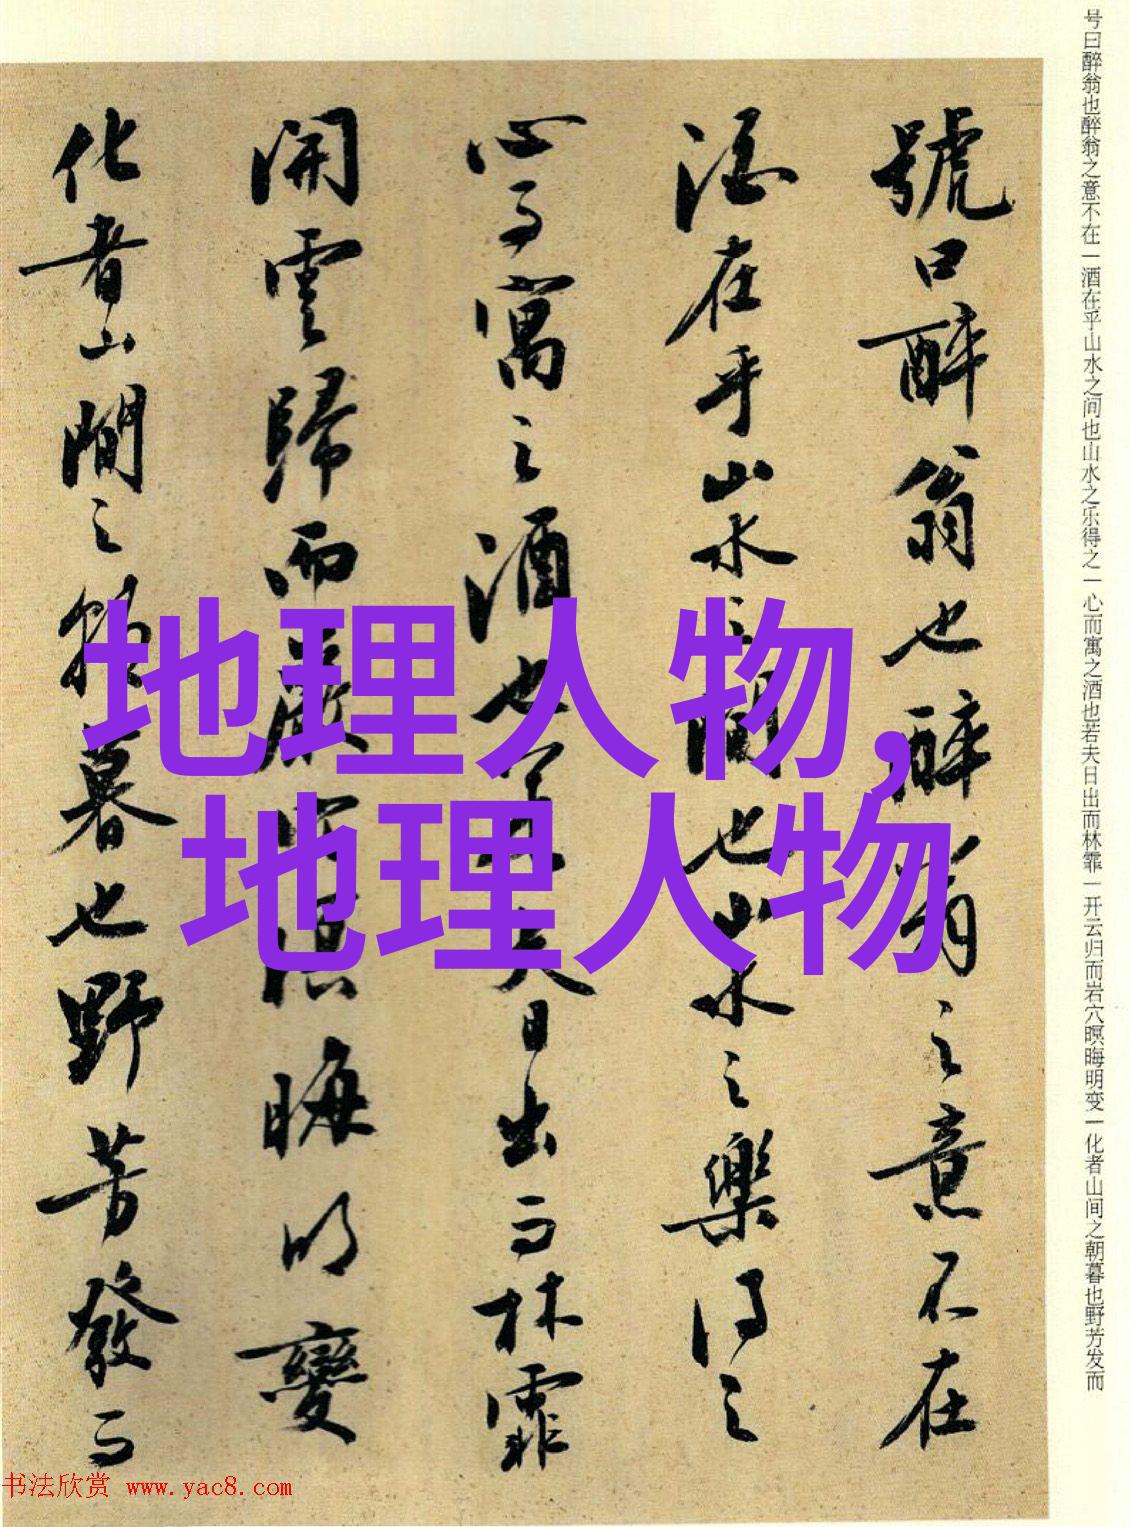 号曰醉翁也醉翁之意不在一酒在乎山水之间也山水之乐得之一心而寓之酒也若夫日出而林霏一开云归而岩穴暝晦明变一化者山间之朝暮也野芳发而
號曰醉翁也醉翁之意不在
酒在乎山水之間也山水之樂得之
心而寓之酒也若夫日出而林霏
開雲歸而巖穴暝晦明變
化者山間之朝暮也野芳發而
地理人物,
地理人物
书法欣赏 www.yac8.com